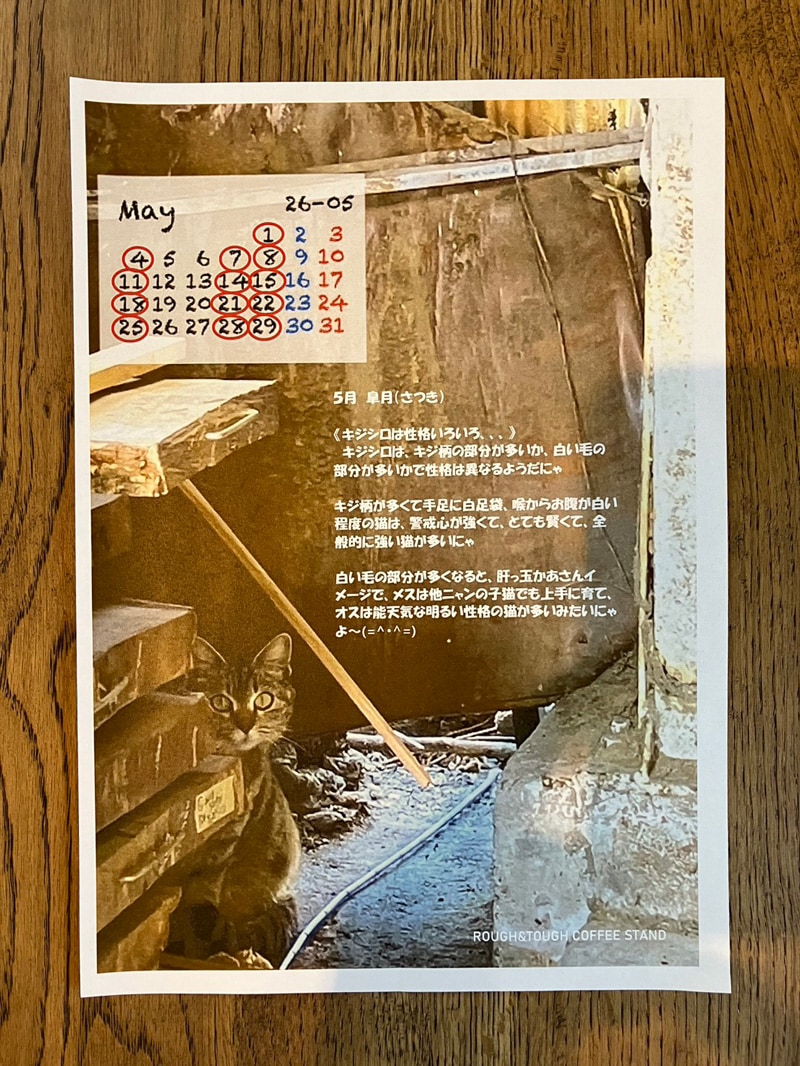 May 26-05
1 2 3
4 5 6 7 8 9 10
11 12 13 14 15 16 17
18 19 20 21 22 23 24
25 26 27 28 29 30 31
5月 皐月(さつき)
《キジシロは性格いろいろ、、、》
キジシロは、キジ柄の部分が多いか、白い毛の
部分が多いかで性格は異なるようだにゃ
キジ柄が多くて手足に白足袋、喉からお腹が白い
程度の猫は、警戒心が強くて、とても賢くて、全
般的に強い猫が多いにゃ
白い毛の部分が多くなると、肝っ玉かあさんイ
メージで、メスは他ニャンの子猫でも上手に育て、
オスは能天気な明るい性格の猫が多いみたいにゃ
よ〜(=^・^=)
ROUGH&TOUGH COFFEE STAND